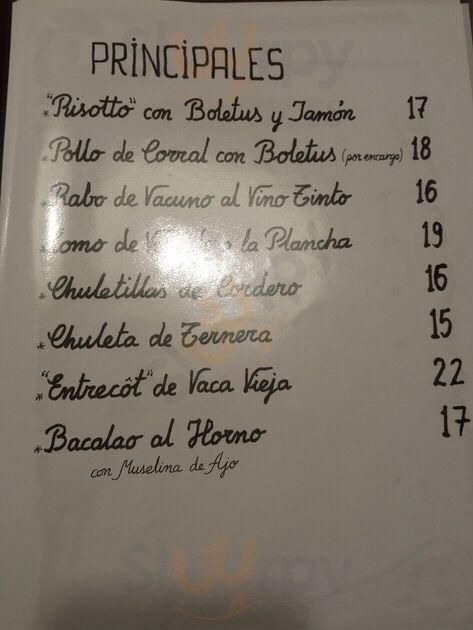 PRINCIPALES
* "Risotto" con Boletus y Jamón 17
* Pollo de Corral con Boletus (por encargo) 18
* Rabo de Vacuno al Vino Tinto 16
Lomo de la Plancha 19
* Chuletillas de Cordero 16
* Chuleta de Ternera 15
* "Entrecôt" de Vaca Vieja 22
* Bacalao al Horno 17
con Muselina de Ajo
Sluurpy